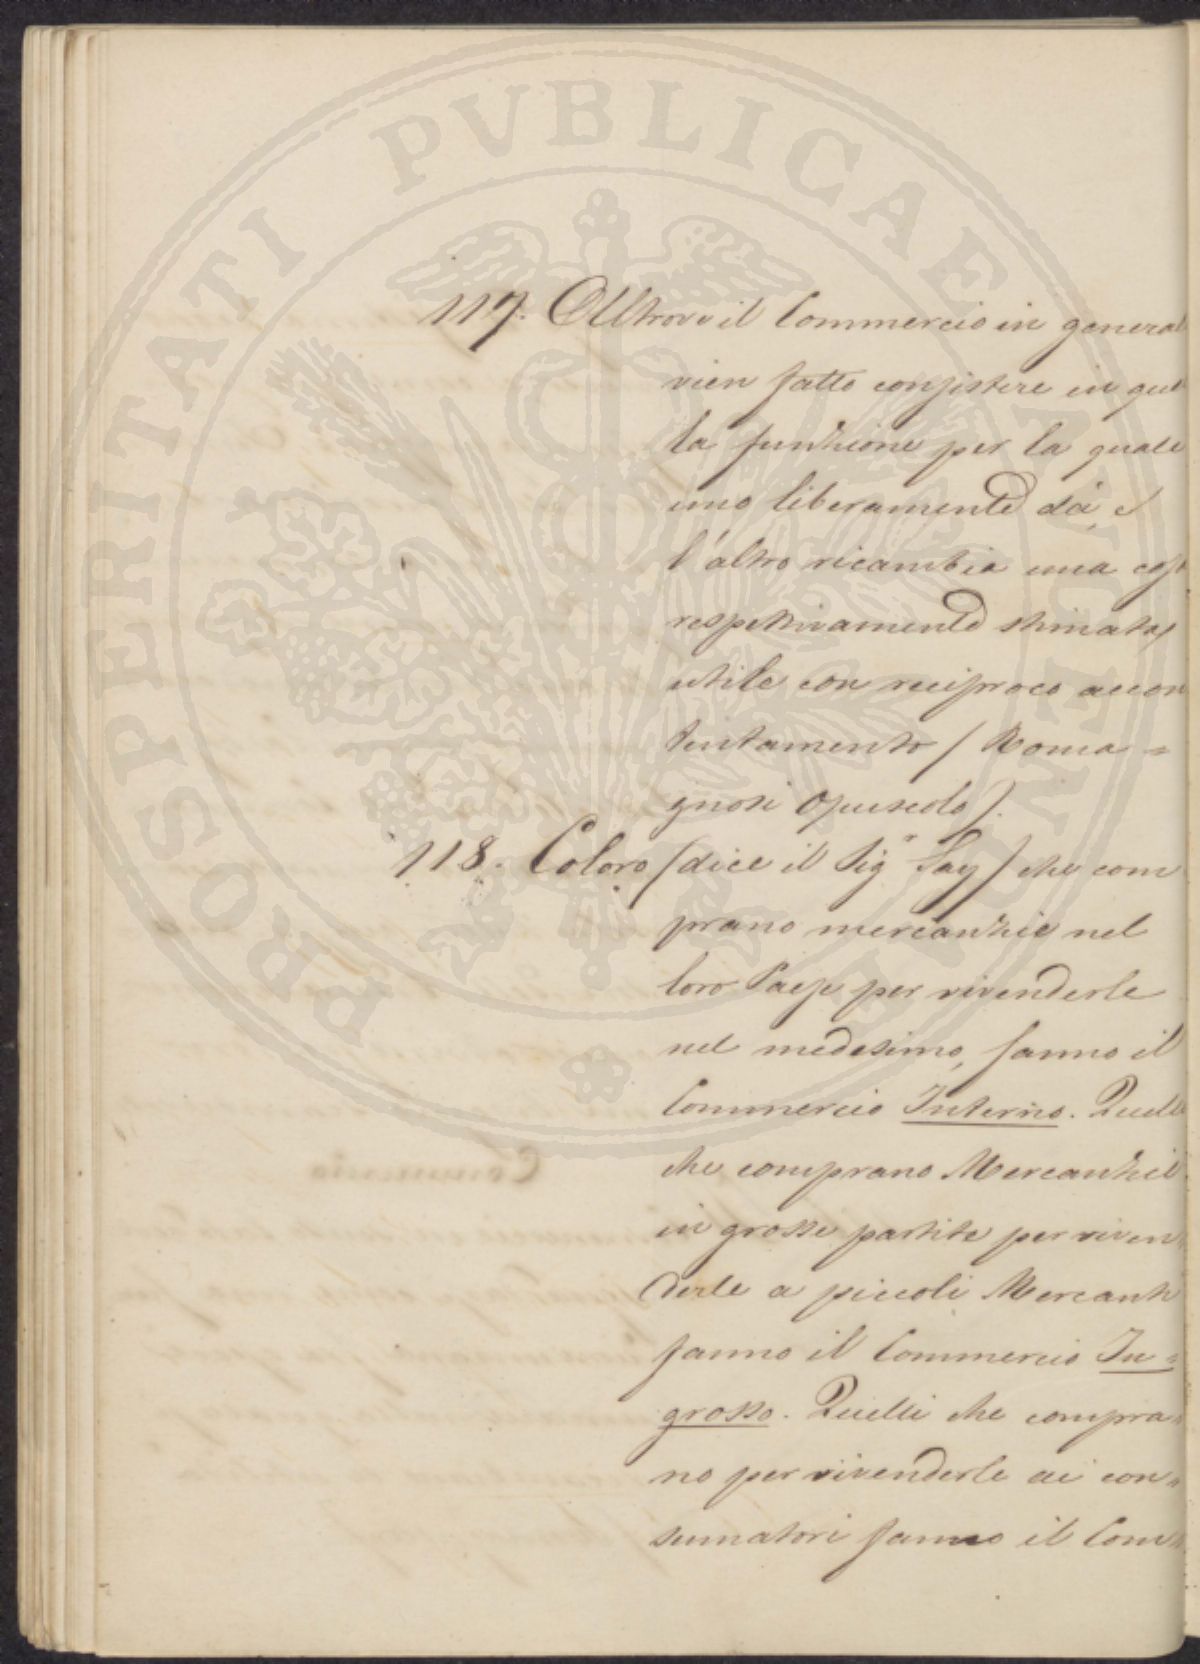 PROSPERITATI PVBLICAE AVGENDAE
117. Alltrove il Commercio in general
vien fatto consistere in quel
la funzione per la quale
uno liberamente dà, e
l'altro ricambia una cosa
respettivamente stimata
utile con reciproco accon
tentamento (Roma =
gnosi Opuscolo).
118. Coloro (dice il Sigr Say) che com
prano mercanzie nel
loro Paese per rivenderle
nel medesimo, fanno il
Commercio Interno. Quelli
che comprano Mercanzie
in grosse partite per riven
derle a piccoli Mercanti
fanno il Commercio In =
grosso. Quelli che compra=
no per rivenderle ai con=
sumatori fanno il Com=
Commercio